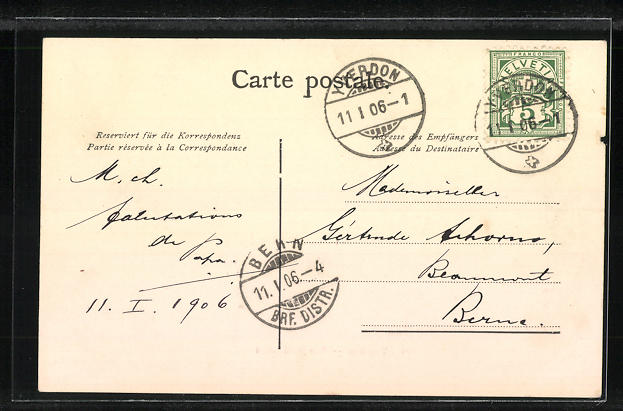 Carte postale.
YVERDON
11 I 06-1
FRANCO
HELVETIA
5
YVERDON
11 I 06-1
Reserviert für die Korrespondenz
Partie réservée à la Correspondance
Adresse des Empfängers
Adresse du Destinataire
M. ch.
Salutations
de Papa.
11. I. 1906
BERN
11. I. 06-4
BRF. DISTR.
Mademoiselle
Gertrude
Beaumont
Berne.